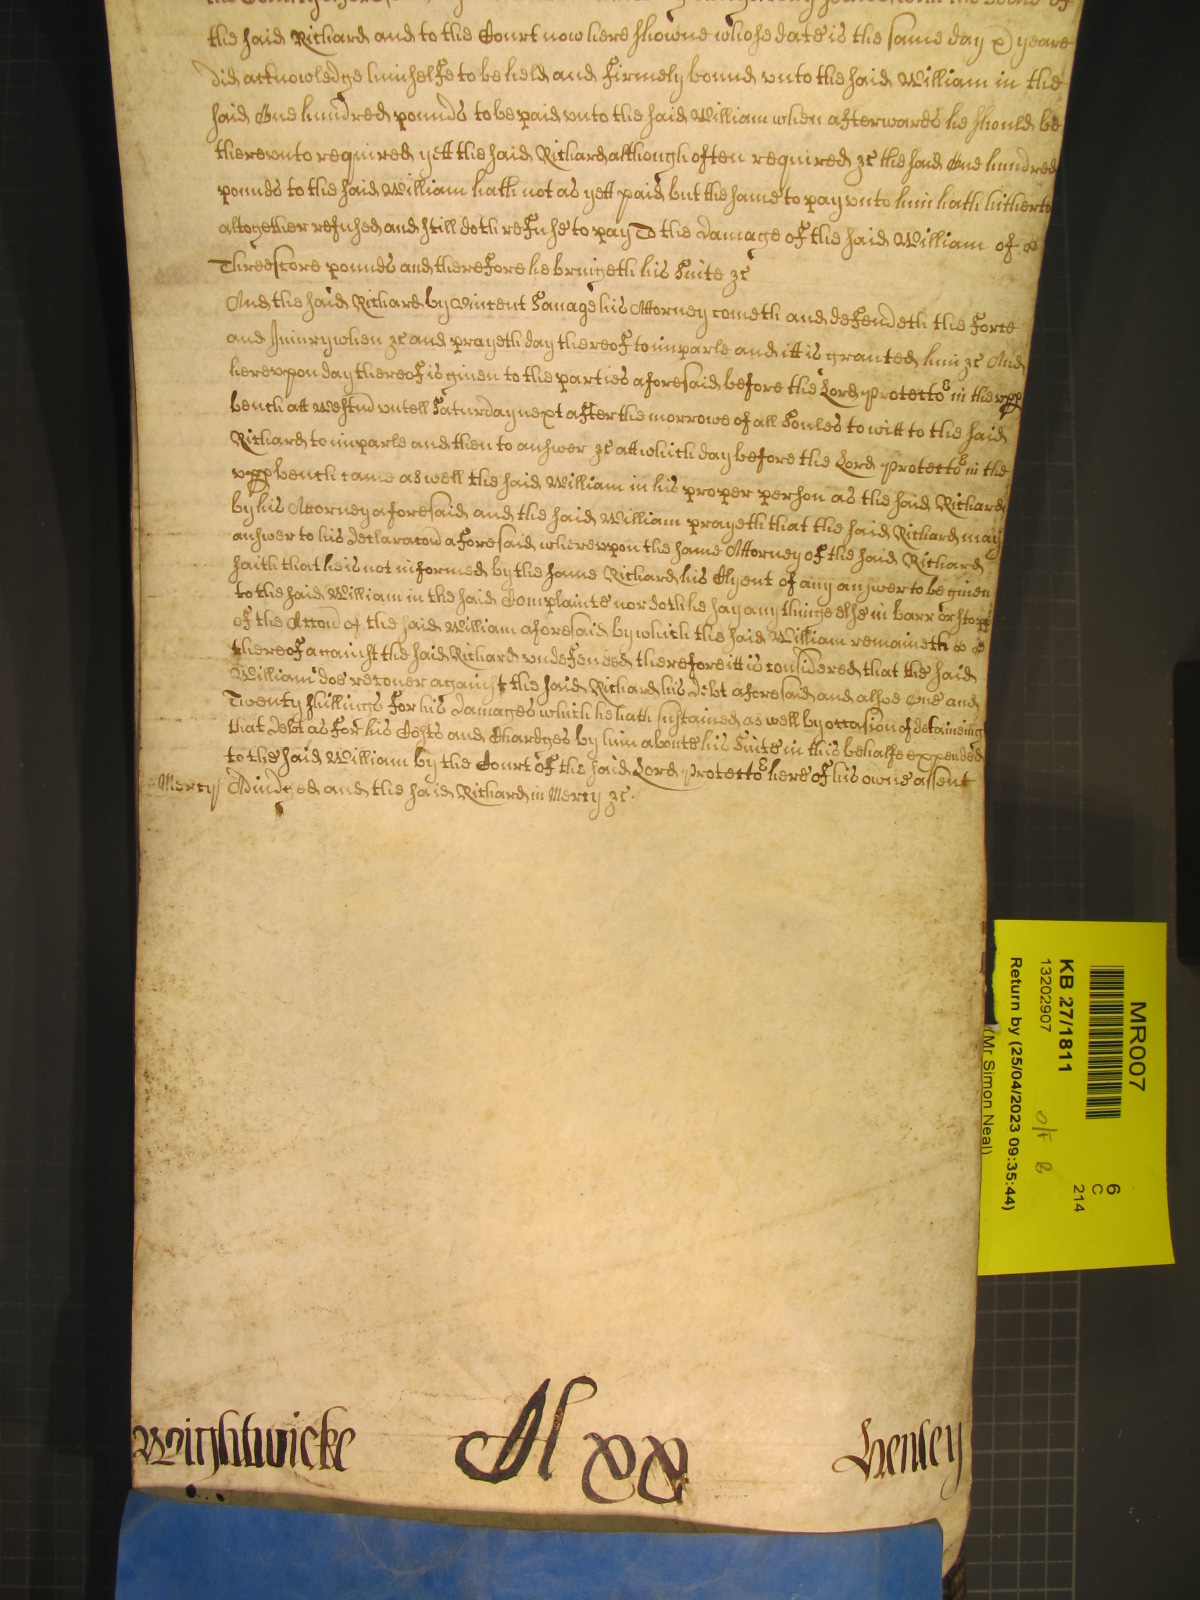 the said Richard and to the Court now here showne whose date is the same day & yeare
did acknowledge himselfe to be held and firmely bound vnto the said William in the
said One hundred pounds to be paid vnto the said William when afterwards he should be
therevnto required yett the said Richard although often required &c the said One hundred
pounds to the said William hath not as yett paid but the same to pay vnto him hath hitherto
altogether refused and still doth refuse to pay To the damage of the said William of
Threescore pounds and therefore he bringeth his Suite &c
And the said Richard by Vincent Sanage his Attorney cometh and defendeth the Force
and Iniury when &c and prayeth day thereof to imparle and itt is granted him &c And
herevpon day thereof is giuen to the parties aforesaid before the Lord Protector in the vpp
bench att Westm vntell Saturday next after the morrowe of all Soules to witt to the said
Richard to imparle and then to answer &c att which day before the Lord Protector in the
vpp bench came as well the said William in his proper person as the said Richard
by his Attorney aforesaid and the said William prayeth that the said Richard may
answer to his declaracon aforesaid wherevpon the same Attorney of the said Richard
saith that he is not informed by the same Richard his Clyent of any answer to be giuen
to the said William in the said Complainte nor doth he say any thinge else in barr or stopp
of the Accon of the said William aforesaid by which the said William remaineth
thereof against the said Richard vndefended therefore itt is considered that the said
William doe recouer against the said Richard his Debt aforesaid and alsoe One and
Twenty shillings for his Damages which he hath sustained as well by occasion of detaineing
that Debt as for his Costs and Chardges by him aboute his Suite in this behalfe expended
to the said William by the Court of the said Lord Protector here of his owne assent
Mercy Adiudged and the said Richard in Mercy &c.
Wightwicke M xx Henley
MR007
KB 27/1811
13202907
Return by (25/04/2023 09:35:44)
(Mr Simon Neal)
6
C
214